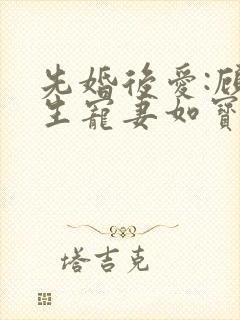 先婚後愛:顧
生寵妻如寶
塔吉克